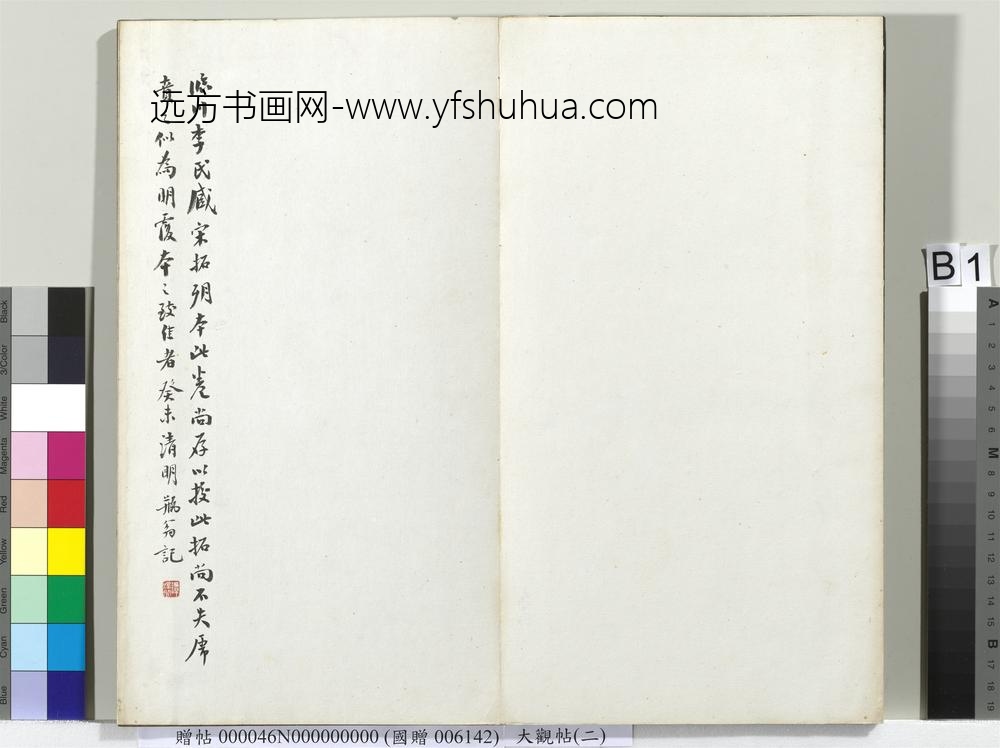 远方书画网-www.yfshuhua.com
臨川李氏藏宋拓殘本此卷尚存以校此拓尚不失席
意似為明覆本之致佳者癸未清明瓶翁記
B 1
Black
3/Color
White
Magenta
Red
Yellow
Green
Cyan
Blue
A
1
2
3
4
5
6
M
8
9
10
11
12
13
14
15
B
17
18
19
贈帖 000046N000000000 (國贈 006142) 大觀帖(二)